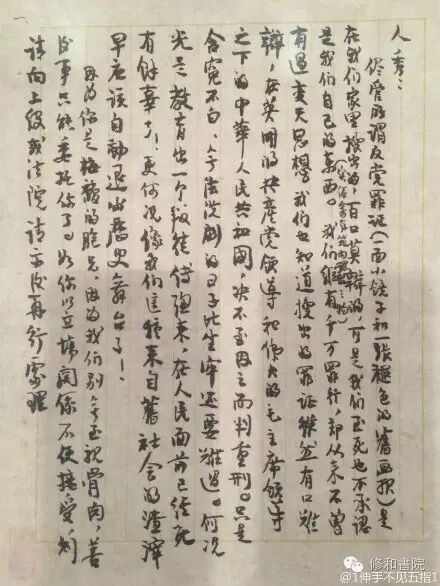 人秀：
尽管所谓反党罪证（一面小镜子和一张褪色的旧画报）是
在我们家里搜出的，百口莫辩的，可是我们至死也不承认
是我们自己的东西。我们纵有千万罪行，却从来不曾
有过变天思想。我们也知道搜出的罪证虽然有口难
辩，在英明的共产党领导和伟大的毛主席领导
之下的中华人民共和国，决不至因之而判重刑。只是
含冤不白，无法洗刷的日子比坐牢还要难过。何况
光是教育出一个叛徒傅聪来，在人民面前已经死
有余辜了！更何况像我们这种来自旧社会的渣滓
早应该自动退出历史舞台了！
因为你是梅馥的胞兄，因为我们别无至亲骨肉，善
后事只能委托你了。如你以立场关系不便接受，则
请向上级或法院请示后再行处理
修和書院
@1伸手不见五指1